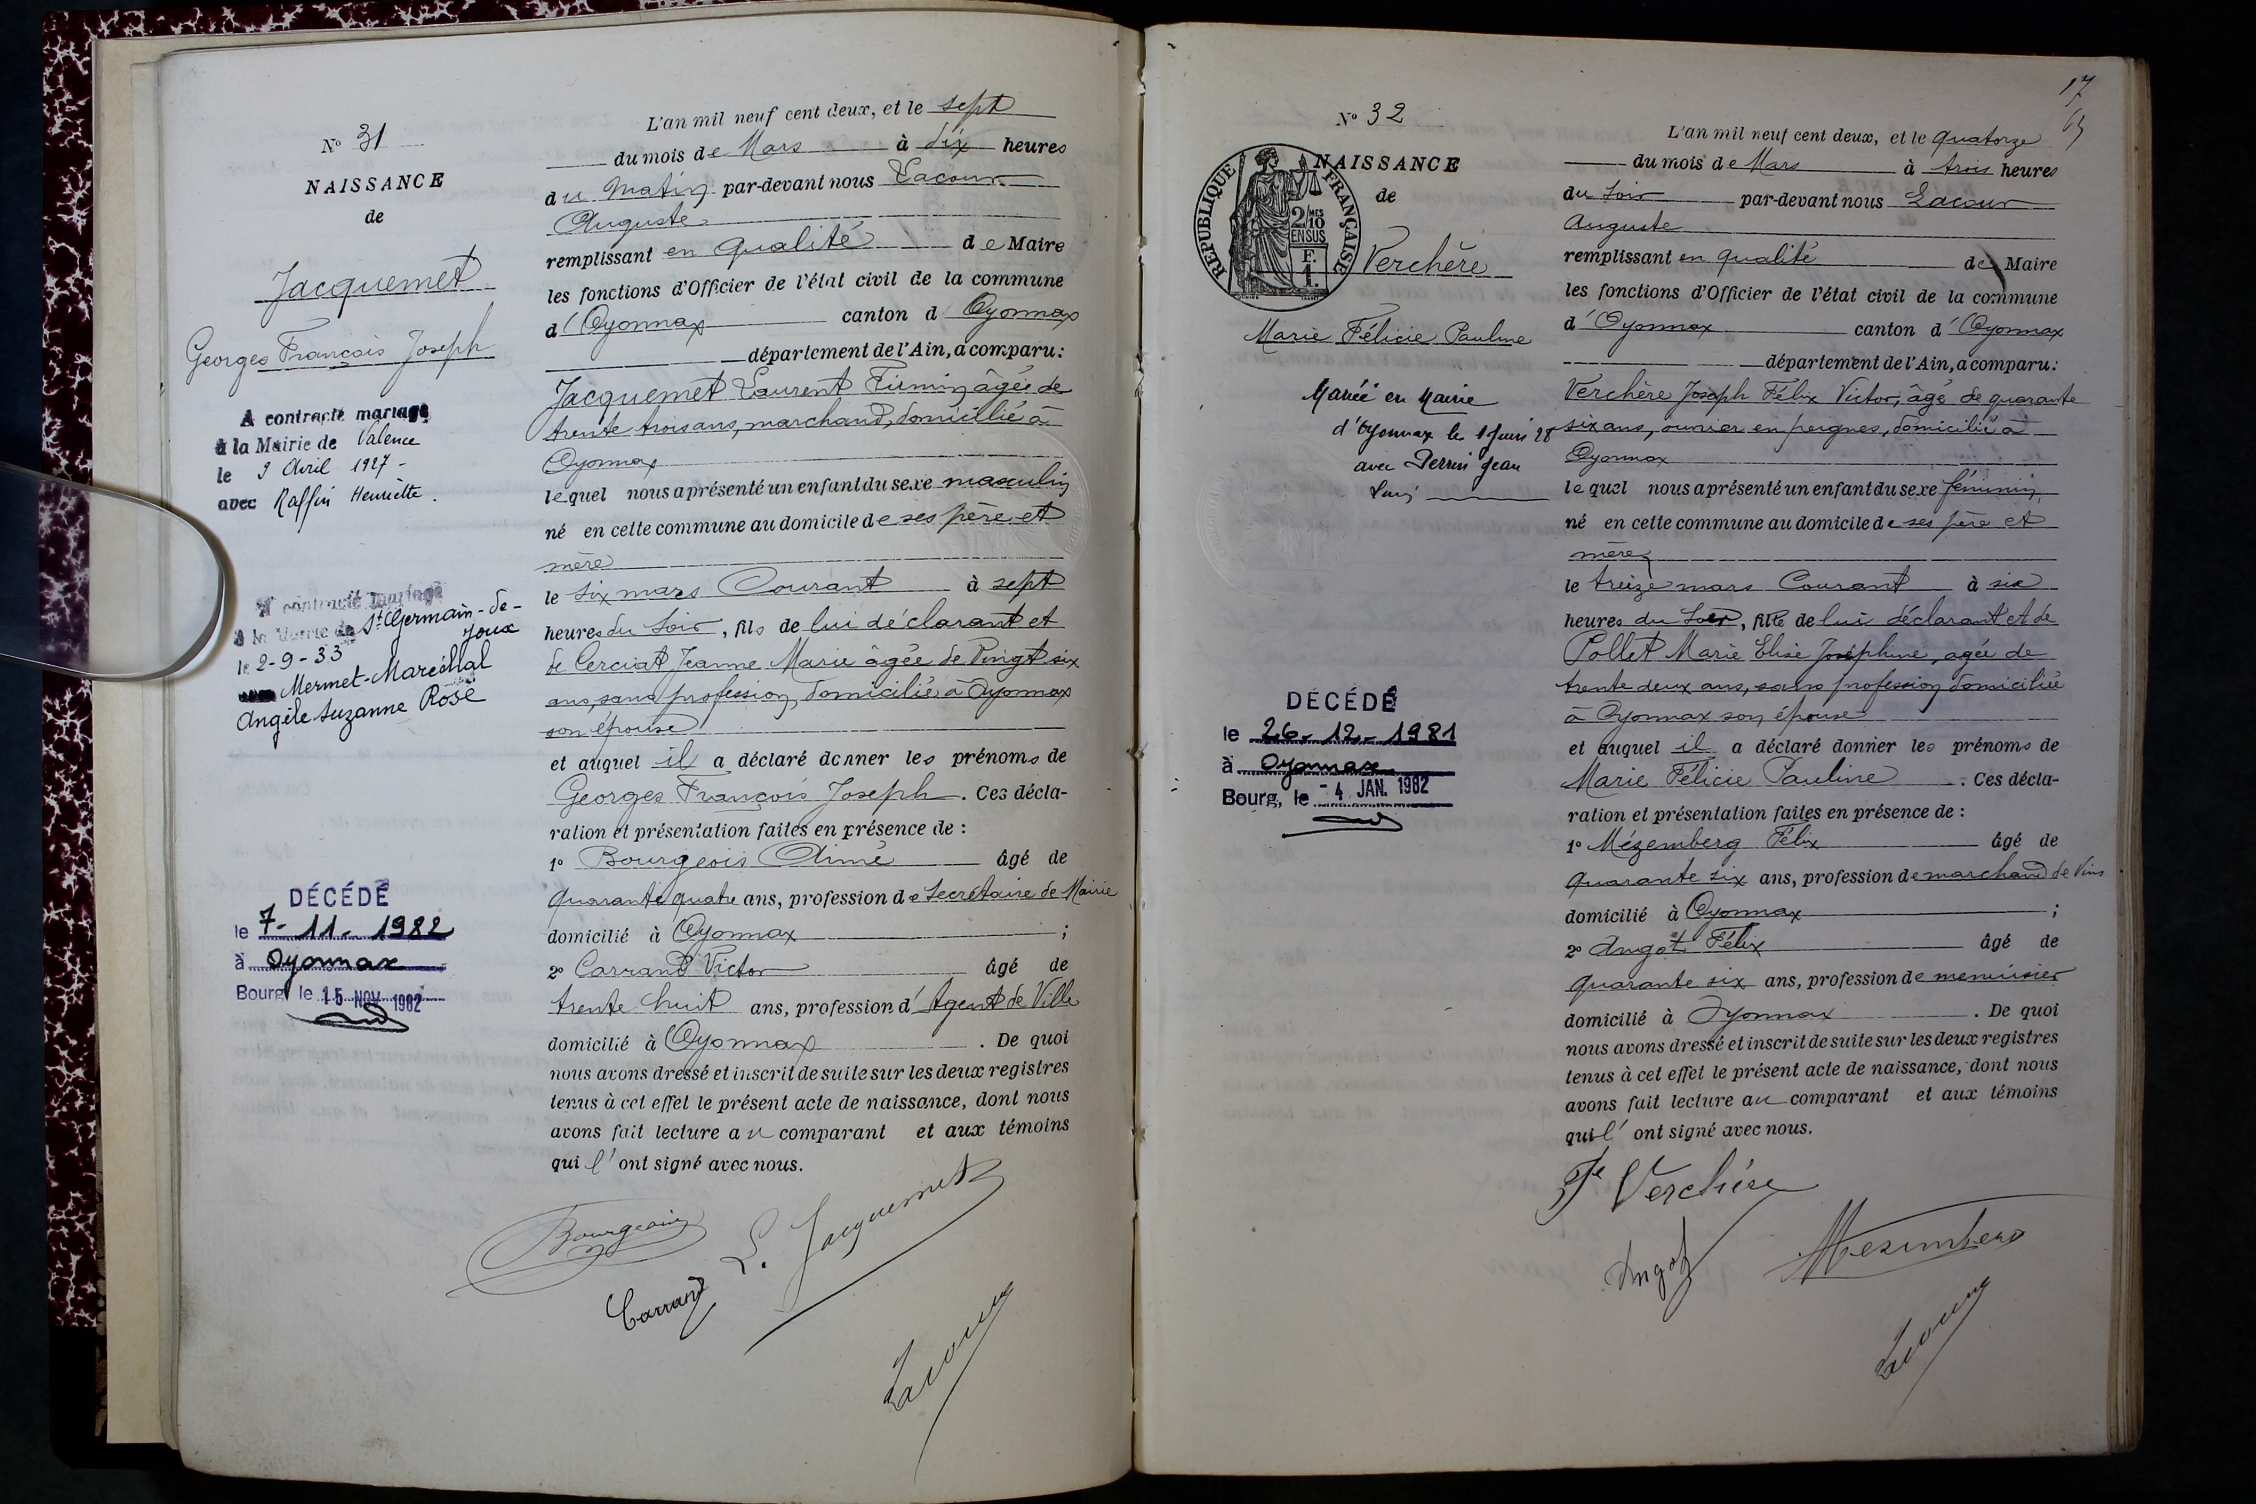 N° 31
NAISSANCE
de
Jacquemet
Georges François Joseph
A contracté mariage
à la Mairie de Valence
le 9 Avril 1927 -
avec Raffin Henriette.
A contracté mariage
à la Mairie de St Germain-de-
Joux
le 2-9-33
Mermet-Maréchal
Angèle Suzanne Rose
DÉCÉDÉ
le 7-11-1982
à Oyonnax
Bourg, le 15 NOV. 1982
L'an mil neuf cent deux, et le sept
du mois de Mars à dix heures
du matin par-devant nous Lacour
Auguste
remplissant en qualité de Maire
les fonctions d'Officier de l'état civil de la commune
d'Oyonnax canton d'Oyonnax
département de l'Ain, a comparu:
Jacquemet Laurent Firmin âgée de
trente trois ans, marchand, domicilié à
Oyonnax
lequel nous a présenté un enfant du sexe masculin
né en cette commune au domicile de ses père et
mère
le six mars Courant à sept
heures du soir, fils de lui déclarant et
de Cerciat Jeanne Marie âgée de Vingt six
ans, sans profession, domiciliée à Oyonnax
son épouse
et auquel il a déclaré donner les prénoms de
Georges François Joseph. Ces décla-
ration et présentation faites en présence de :
1° Bourgeois Aimé âgé de
quarante quatre ans, profession de Secrétaire de Mairie
domicilié à Oyonnax ;
2° Carrand Victor âgé de
trente huit ans, profession d'Agent de Ville
domicilié à Oyonnax. De quoi
nous avons dressé et inscrit de suite sur les deux registres
tenus à cet effet le présent acte de naissance, dont nous
avons fait lecture au comparant et aux témoins
qui l'ont signé avec nous.
Bourgeois
L. Jacquemet
Carrand
Lacour
17
N° 32
NAISSANCE
de
REPUBLIQUE FRANÇAISE
2/10 MES
EN SUS
F.
1.
Verchère
Marie Félicie Pauline
Mariée en Mairie
d'Oyonnax le 1 Juin 28
avec Perrin Jean
DÉCÉDÉ
le 26-12-1981
à Oyonnax
Bourg, le - 4 JAN. 1982
L'an mil neuf cent deux, et le quatorze
du mois de Mars à trois heures
du soir par-devant nous Lacour
Auguste
remplissant en qualité de Maire
les fonctions d'Officier de l'état civil de la commune
d'Oyonnax canton d'Oyonnax
département de l'Ain, a comparu:
Verchère Joseph Félix Victor, âgé de quarante
six ans, ouvrier en peignes, domicilié à
Oyonnax
lequel nous a présenté un enfant du sexe féminin
né en cette commune au domicile de ses père et
mère
le treize mars Courant à six
heures du soir, fille de lui déclarant et de
Pollet Marie Elise Joséphine, agée de
trente deux ans, sans profession domiciliée
à Oyonnax son épouse
et auquel il a déclaré donner les prénoms de
Marie Félicie Pauline. Ces décla-
ration et présentation faites en présence de :
1° Mézemberg Félix âgé de
quarante six ans, profession de marchand de Vins
domicilié à Oyonnax ;
2° Angot Félix âgé de
quarante six ans, profession de menuisier
domicilié à Oyonnax. De quoi
nous avons dressé et inscrit de suite sur les deux registres
tenus à cet effet le présent acte de naissance, dont nous
avons fait lecture au comparant et aux témoins
qui l'ont signé avec nous.
Verchère
Angot
Mezemberg
Lacour